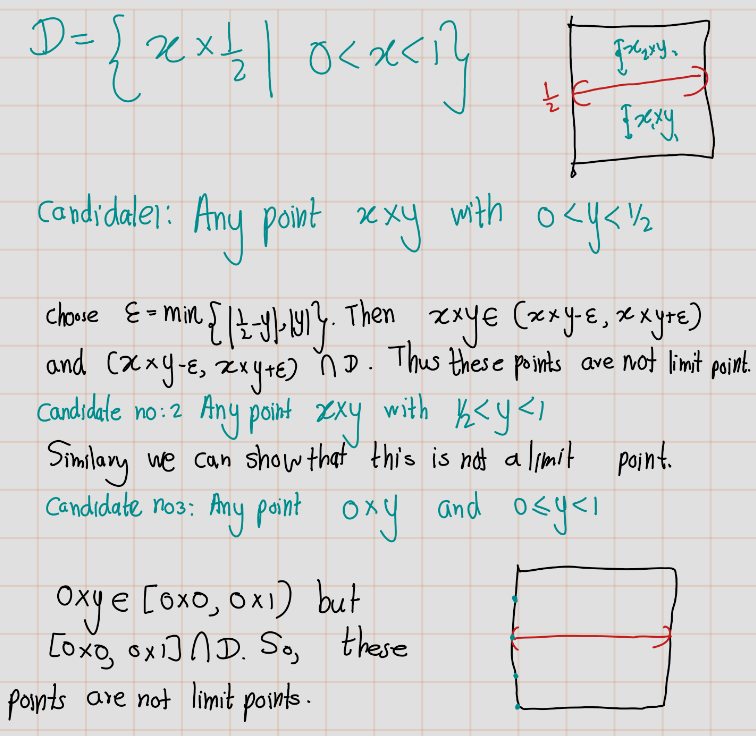 D = { x × 1/2 | 0 < x < 1 }
x₂×y₂
1/2
x₁×y₁
Candidate1: Any point x×y with 0 < y < 1/2
choose ε = min { |1/2-y|, |y| }. Then x×y ∈ (x×y-ε, x×y+ε)
and (x×y-ε, x×y+ε) ∩ D. Thus these points are not limit point.
Candidate no:2 Any point x×y with 1/2 < y < 1
Similary we can show that this is not a limit point.
Candidate no3: Any point 0×y and 0 ≤ y < 1
0×y ∈ [0×0, 0×1) but
[0×0, 0×1] ∩ D. So, these
points are not limit points.